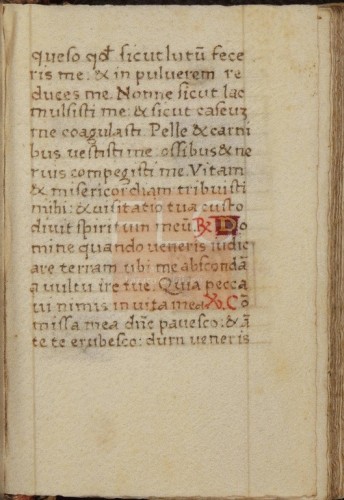 queso qd sicut lutū fece
ris me: & in pulverem re
duces me. Nonne sicut lac
mulsisti me: & sicut caseuz
me coagulasti. Pelle & carni
bus vestisti me: ossibus & ne
rvis compegisti me. Vitam
& misericordiam tribuisti
mihi: & visitatio tua custo
divit spiritum meū. ℟ Do
mine quando veneris iudic
are terram. ubi me abscondā
a vultu ire tue. Quia pecca
vi nimis in vita mea ℣. Cō
missa mea dñe pavesco: & ā
te te erubesco: dum veneris